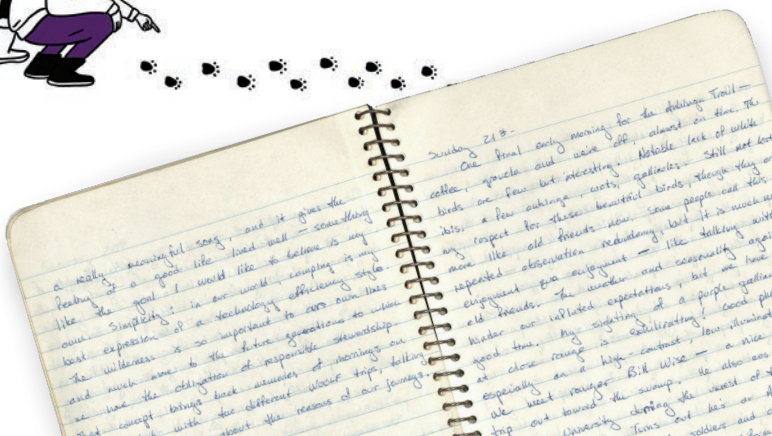 a really meaningful song, and it gives the
feeling of a good life lived well — something
like the goal I would like to believe is my
own. Simplicity: in our world, camping is my
best expression of a technology efficiency style.
The wilderness is so important to our own lives
and much more to the future generations to which
we have the obligation of responsible stewardship.
That concept brings back memories of mornings on
with the different trips, talking
about the reasons of our journeys
Sunday 21st.
One final early morning for the Anhinga Trail —
coffee, granola and we're off, almost on time. The
birds are few but interesting. Notable lack of white
ibis, a few anhingas, coots, gallinules. Still not lost
my respect for these beautiful birds, though they are
more like old friends now. Some people call this
repeated observation redundancy, but it is much
enjoyment — like talking with
old friends. The weather and seasonality again
hinder our inflated expectations, but we have
good time. My sighting of a purple gallinule
at close range is exhilarating! Good
especially in a high-contrast, low illumination
We meet ranger Bill Wise — a nice
tap out toward the swamp. He also
University during the
Turns out he's an
soldiers and